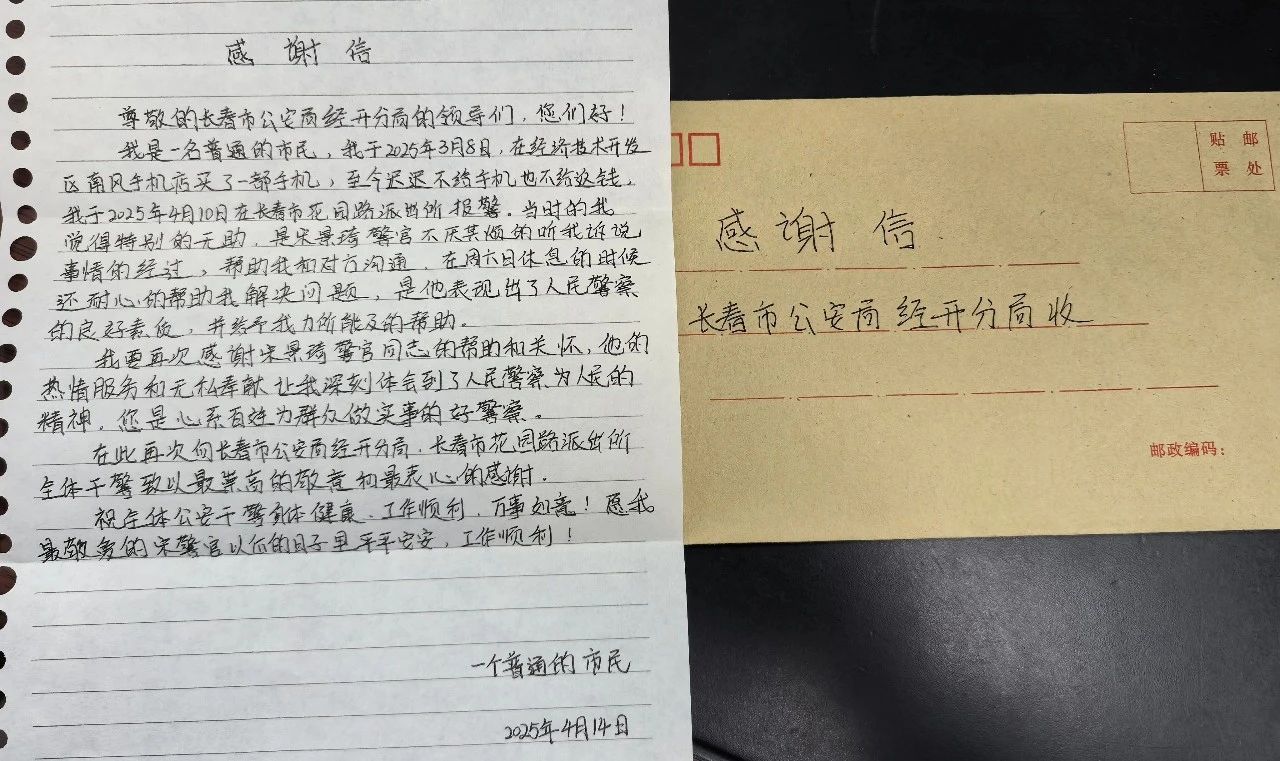 感谢信
尊敬的长春市公安局经开分局的领导们，您们好！
我是一名普通的市民，我于2025年3月8日，在经济技术开发
区南风手机店买了一部手机，至今迟迟不给手机也不给返钱。
我于2025年4月10日在长春市花园路派出所报警。当时的我
觉得特别的无助，是宋景琦警官不厌其烦的听我诉说
事情的经过，帮助我和对方沟通，在周六日休息的时候
还耐心的帮助我解决问题，是他表现出了人民警察
的良好素质，并给予我力所能及的帮助。
我要再次感谢宋景琦警官同志的帮助和关怀，他的
热情服务和无私奉献让我深刻体会到了人民警察为人民的
精神，您是心系百姓为群众做实事的好警察。
在此再次向长春市公安局经开分局，长春市花园路派出所
全体干警致以最崇高的敬意和最衷心的感谢。
祝全体公安干警身体健康，工作顺利，万事如意！愿我
最敬爱的宋警官以后的日子里平平安安，工作顺利！
一个普通的市民
2025年4月14日
贴邮
票处
感谢信
长春市公安局经开分局收
邮政编码：